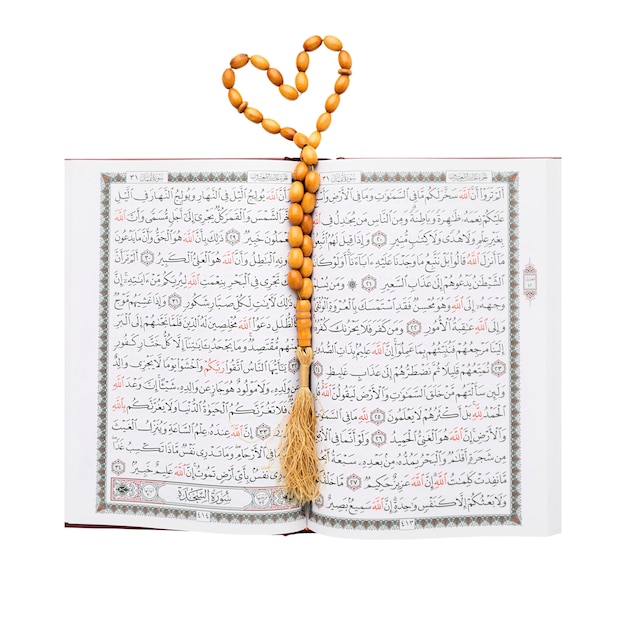 سُورَةُ لُقۡمَان ٣١
أَلَمۡ تَرَوۡاْ أَنَّ ٱللَّهَ سَخَّرَ لَكُم مَّا فِي ٱلسَّمَٰوَٰتِ وَمَا فِي ٱلۡأَرۡضِ
عَلَيۡكُمۡ نِعَمَهُۥ ظَٰهِرَةٗ وَبَاطِنَةٗۗ وَمِنَ ٱلنَّاسِ مَن يُجَٰدِلُ فِي
بِغَيۡرِ عِلۡمٖ وَلَا هُدٗى وَلَا كِتَٰبٖ مُّنِيرٖ ٢٠ وَإِذَا قِيلَ لَهُمُ
مَآ أَنزَلَ ٱللَّهُ قَالُواْ بَلۡ نَتَّبِعُ مَا وَجَدۡنَا عَلَيۡهِ ءَابَآءَنَآۚ أَوَلَوۡ كَانَ
ٱلشَّيۡطَٰنُ يَدۡعُوهُمۡ إِلَىٰ عَذَابِ ٱلسَّعِيرِ ٢١ وَمَن
وَجۡهَهُۥٓ إِلَى ٱللَّهِ وَهُوَ مُحۡسِنٞ فَقَدِ ٱسۡتَمۡسَكَ بِٱلۡعُرۡوَةِ
وَإِلَى ٱللَّهِ عَٰقِبَةُ ٱلۡأُمُورِ ٢٢ وَمَن كَفَرَ فَلَا يَحۡزُنكَ
إِلَيۡنَا مَرۡجِعُهُمۡ فَنُنَبِّئُهُم بِمَا عَمِلُوٓاْۚ إِنَّ ٱللَّهَ عَلِيمُۢ بِذَاتِ
نُمَتِّعُهُمۡ قَلِيلٗا ثُمَّ نَضۡطَرُّهُمۡ إِلَىٰ عَذَابٍ غَلِيظٖ
وَلَئِن سَأَلۡتَهُم مَّنۡ خَلَقَ ٱلسَّمَٰوَٰتِ وَٱلۡأَرۡضَ لَيَقُولُنَّ ٱللَّهُۚ
ٱلۡحَمۡدُ لِلَّهِۚ بَلۡ أَكۡثَرُهُمۡ لَا يَعۡلَمُونَ ٢٥ لِلَّهِ مَا فِي
وَٱلۡأَرۡضِۚ إِنَّ ٱللَّهَ هُوَ ٱلۡغَنِيُّ ٱلۡحَمِيدُ ٢٦ وَلَوۡ أَنَّمَا فِي
مِن شَجَرَةٍ أَقۡلَٰمٞ وَٱلۡبَحۡرُ يَمُدُّهُۥ مِنۢ بَعۡدِهِۦ سَبۡعَةُ
مَّا نَفِدَتۡ كَلِمَٰتُ ٱللَّهِۚ إِنَّ ٱللَّهَ عَزِيزٌ حَكِيمٞ ٢٧
وَلَا بَعۡثُكُمۡ إِلَّا كَنَفۡسٖ وَٰحِدَةٍۚ إِنَّ ٱللَّهَ سَمِيعُۢ بَصِيرٌ
٤١٣
سُورَةُ لُقۡمَان ٣١
ٱللَّهَ يُولِجُ ٱلَّيۡلَ فِي ٱلنَّهَارِ وَيُولِجُ ٱلنَّهَارَ فِي ٱلَّيۡلِ
ٱلشَّمۡسَ وَٱلۡقَمَرَۖ كُلّٞ يَجۡرِيٓ إِلَىٰٓ أَجَلٖ مُّسَمّٗى وَأَنَّ ٱللَّهَ
تَعۡمَلُونَ خَبِيرٞ ٢٩ ذَٰلِكَ بِأَنَّ ٱللَّهَ هُوَ ٱلۡحَقُّ وَأَنَّ مَا يَدۡعُونَ
ٱلۡبَٰطِلُ وَأَنَّ ٱللَّهَ هُوَ ٱلۡعَلِيُّ ٱلۡكَبِيرُ ٣٠ أَلَمۡ تَرَ أَنَّ
تَجۡرِي فِي ٱلۡبَحۡرِ بِنِعۡمَتِ ٱللَّهِ لِيُرِيَكُم مِّنۡ ءَايَٰتِهِۦٓۚ إِنَّ
ذَٰلِكَ لَأٓيَٰتٖ لِّكُلِّ صَبَّارٖ شَكُورٖ ٣١ وَإِذَا غَشِيَهُم مَّوۡجٞ
كَٱلظُّلَلِ دَعَوُاْ ٱللَّهَ مُخۡلِصِينَ لَهُ ٱلدِّينَ فَلَمَّا نَجَّىٰهُمۡ إِلَى ٱلۡبَرِّ
فَمِنۡهُم مُّقۡتَصِدٞۚ وَمَا يَجۡحَدُ بِـَٔايَٰتِنَآ إِلَّا كُلُّ خَتَّارٖ كَفُورٖ
يَٰٓأَيُّهَا ٱلنَّاسُ ٱتَّقُواْ رَبَّكُمۡ وَٱخۡشَوۡاْ يَوۡمٗا لَّا يَجۡزِي وَالِدٌ
وَلَدِهِۦ وَلَا مَوۡلُودٌ هُوَ جَازٍ عَن وَالِدِهِۦ شَيۡـًٔاۚ إِنَّ وَعۡدَ ٱللَّهِ
فَلَا تَغُرَّنَّكُمُ ٱلۡحَيَوٰةُ ٱلدُّنۡيَا وَلَا يَغُرَّنَّكُم بِٱللَّهِ
إِنَّ ٱللَّهَ عِندَهُۥ عِلۡمُ ٱلسَّاعَةِ وَيُنَزِّلُ ٱلۡغَيۡثَ
مَا فِي ٱلۡأَرۡحَامِۖ وَمَا تَدۡرِي نَفۡسٞ مَّاذَا تَكۡسِبُ غَدٗاۖ
نَفۡسُۢ بِأَيِّ أَرۡضٖ تَمُوتُۚ إِنَّ ٱللَّهَ عَلِيمٌ خَبِيرُۢ ٣٤
سُورَةُ ٱلسَّجۡدَةِ
٤١٤